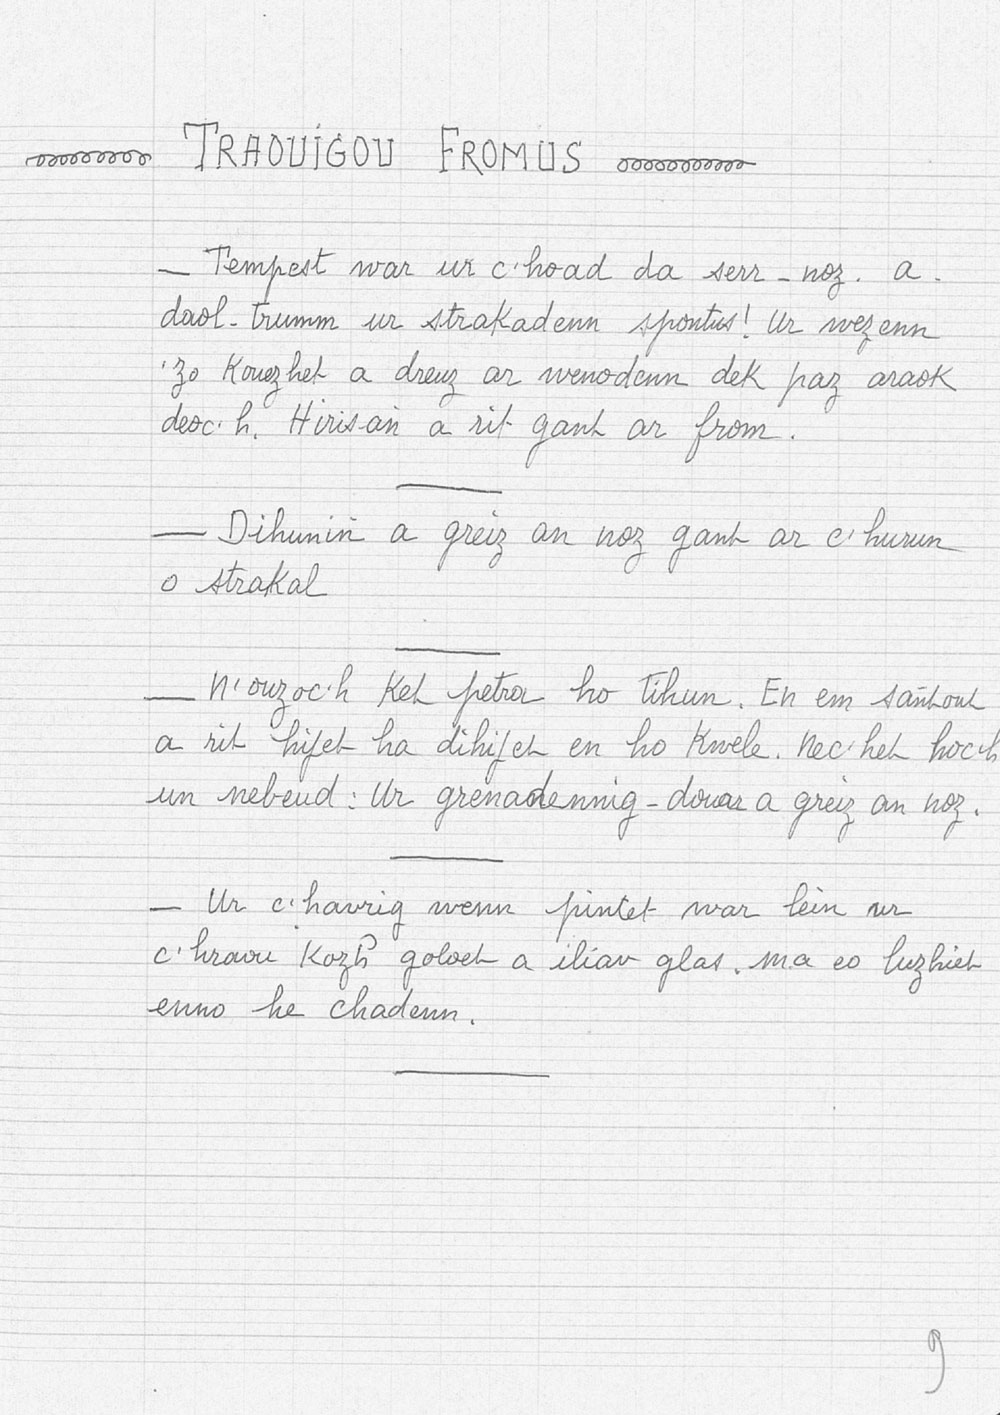 TRAOUIGOU FROMUS
— Tempest war ur c'hoad da serr-noz. a-
daol-trumm ur strakadenn spontus! Ur wezenn
'zo kouezhet a dreuz ar wenodenn dek paz araok
deoc'h. Hirisañ a rit gant ar from.
— Dihuniñ a greiz an noz gant ar c'hurun
o strakal
— N'ouzoc'h ket petra ho tihun. En em sañtout
a rit hijet ha dihijet en ho kwele. Nec'het hoc'h
un nebeud : Ur grenadennig-douar a greiz an noz.
— Ur c'havrig wenn pintet war lein ur
c'hraou kozh goloet a iliav glas. ma eo luzhiet
enno he chadenn.
9